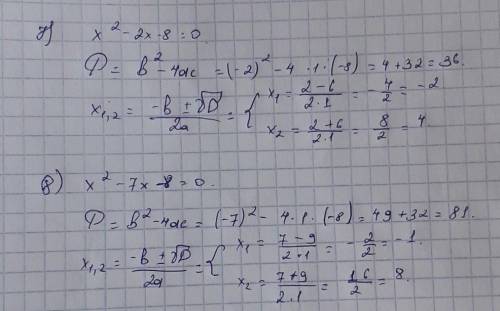 7) x² - 2x - 8 = 0.
D = b² - 4ac = (-2)² - 4 · 1 · (-8) = 4 + 32 = 36.
x₁,₂ = (-b ± √D)/2a = { x₁ = (2 - 6)/(2·1) = -4/2 = -2
x₂ = (2 + 6)/(2·1) = 8/2 = 4
8) x² - 7x - 8 = 0.
D = b² - 4ac = (-7)² - 4 · 1 · (-8) = 49 + 32 = 81.
x₁,₂ = (-b ± √D)/2a = { x₁ = (7 - 9)/(2·1) = -2/2 = -1.
x₂ = (7 + 9)/(2·1) = 16/2 = 8.